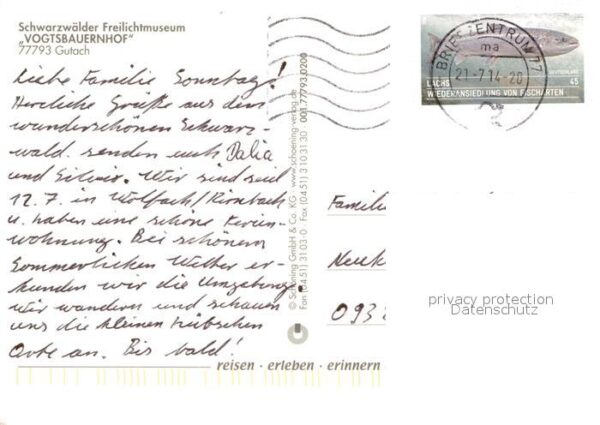 Schwarzwälder Freilichtmuseum
„VOGTSBAUERNHOF“
77793 Gutach
Liebe Familie Sonntag!
Herzliche Grüße aus dem
wunderschönen Schwarz-
wald senden euch Dalia
und Silvio. Wir sind seit
12.7. in Wolfach/Kirnbach
u. haben eine schöne Ferien-
wohnung. Bei schönem
Sommerlichen Wetter er-
kunden wir die Umgebung
wir wandern und schauen
uns die kleinen hübschen
Orte an. Bis bald!
© Schöning GmbH & Co. KG · www.schoening-verlag.de
Fon (04 51) 31 03-0 · Fax (04 51) 3 10 31 30 · 001.77793.0200
BRIEFZENTRUM 77
ma
21-7.14-20
DEUTSCHLAND
LACHS
45
WIEDERANSIEDLUNG VON FISCHARTEN
Famili
093
privacy protection
Datenschutz
reisen · erleben · erinnern